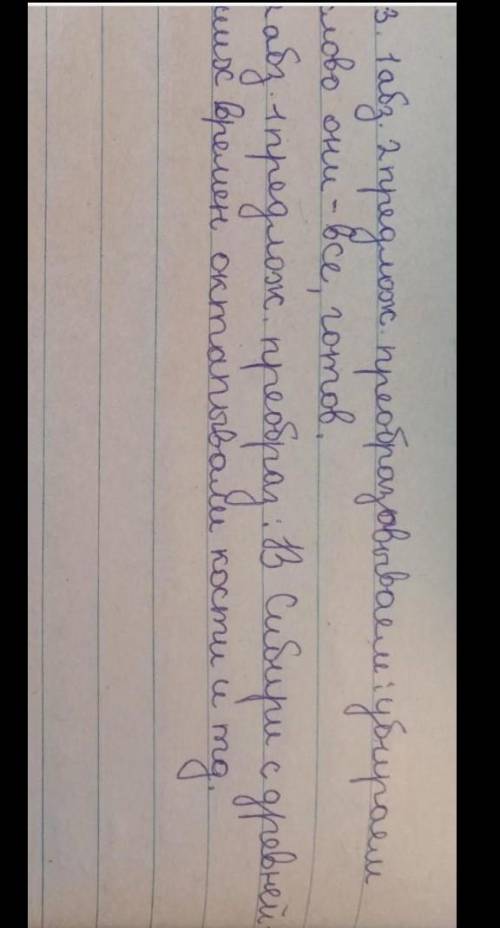 3. 1 абз. 2 предлож. преобразовываем: убираем
лово они - все, готов.
абз. 1 предлож. преобраз: В Сибири с древней-
ших времен октапывали кости и тд.